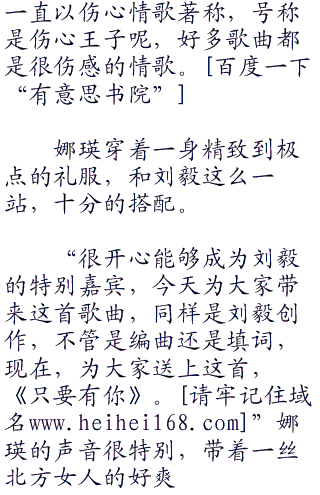 一直以伤心情歌著称，号称
是伤心王子呢，好多歌曲都
是很伤感的情歌。[百度一下
“有意思书院”]
娜瑛穿着一身精致到极
点的礼服，和刘毅这么一
站，十分的搭配。
“很开心能够成为刘毅
的特别嘉宾，今天为大家带
来这首歌曲，同样是刘毅创
作，不管是编曲还是填词，
现在，为大家送上这首，
《只要有你》。[请牢记住域
名www.heihei168.com]”娜
瑛的声音很特别，带着一丝
北方女人的好爽